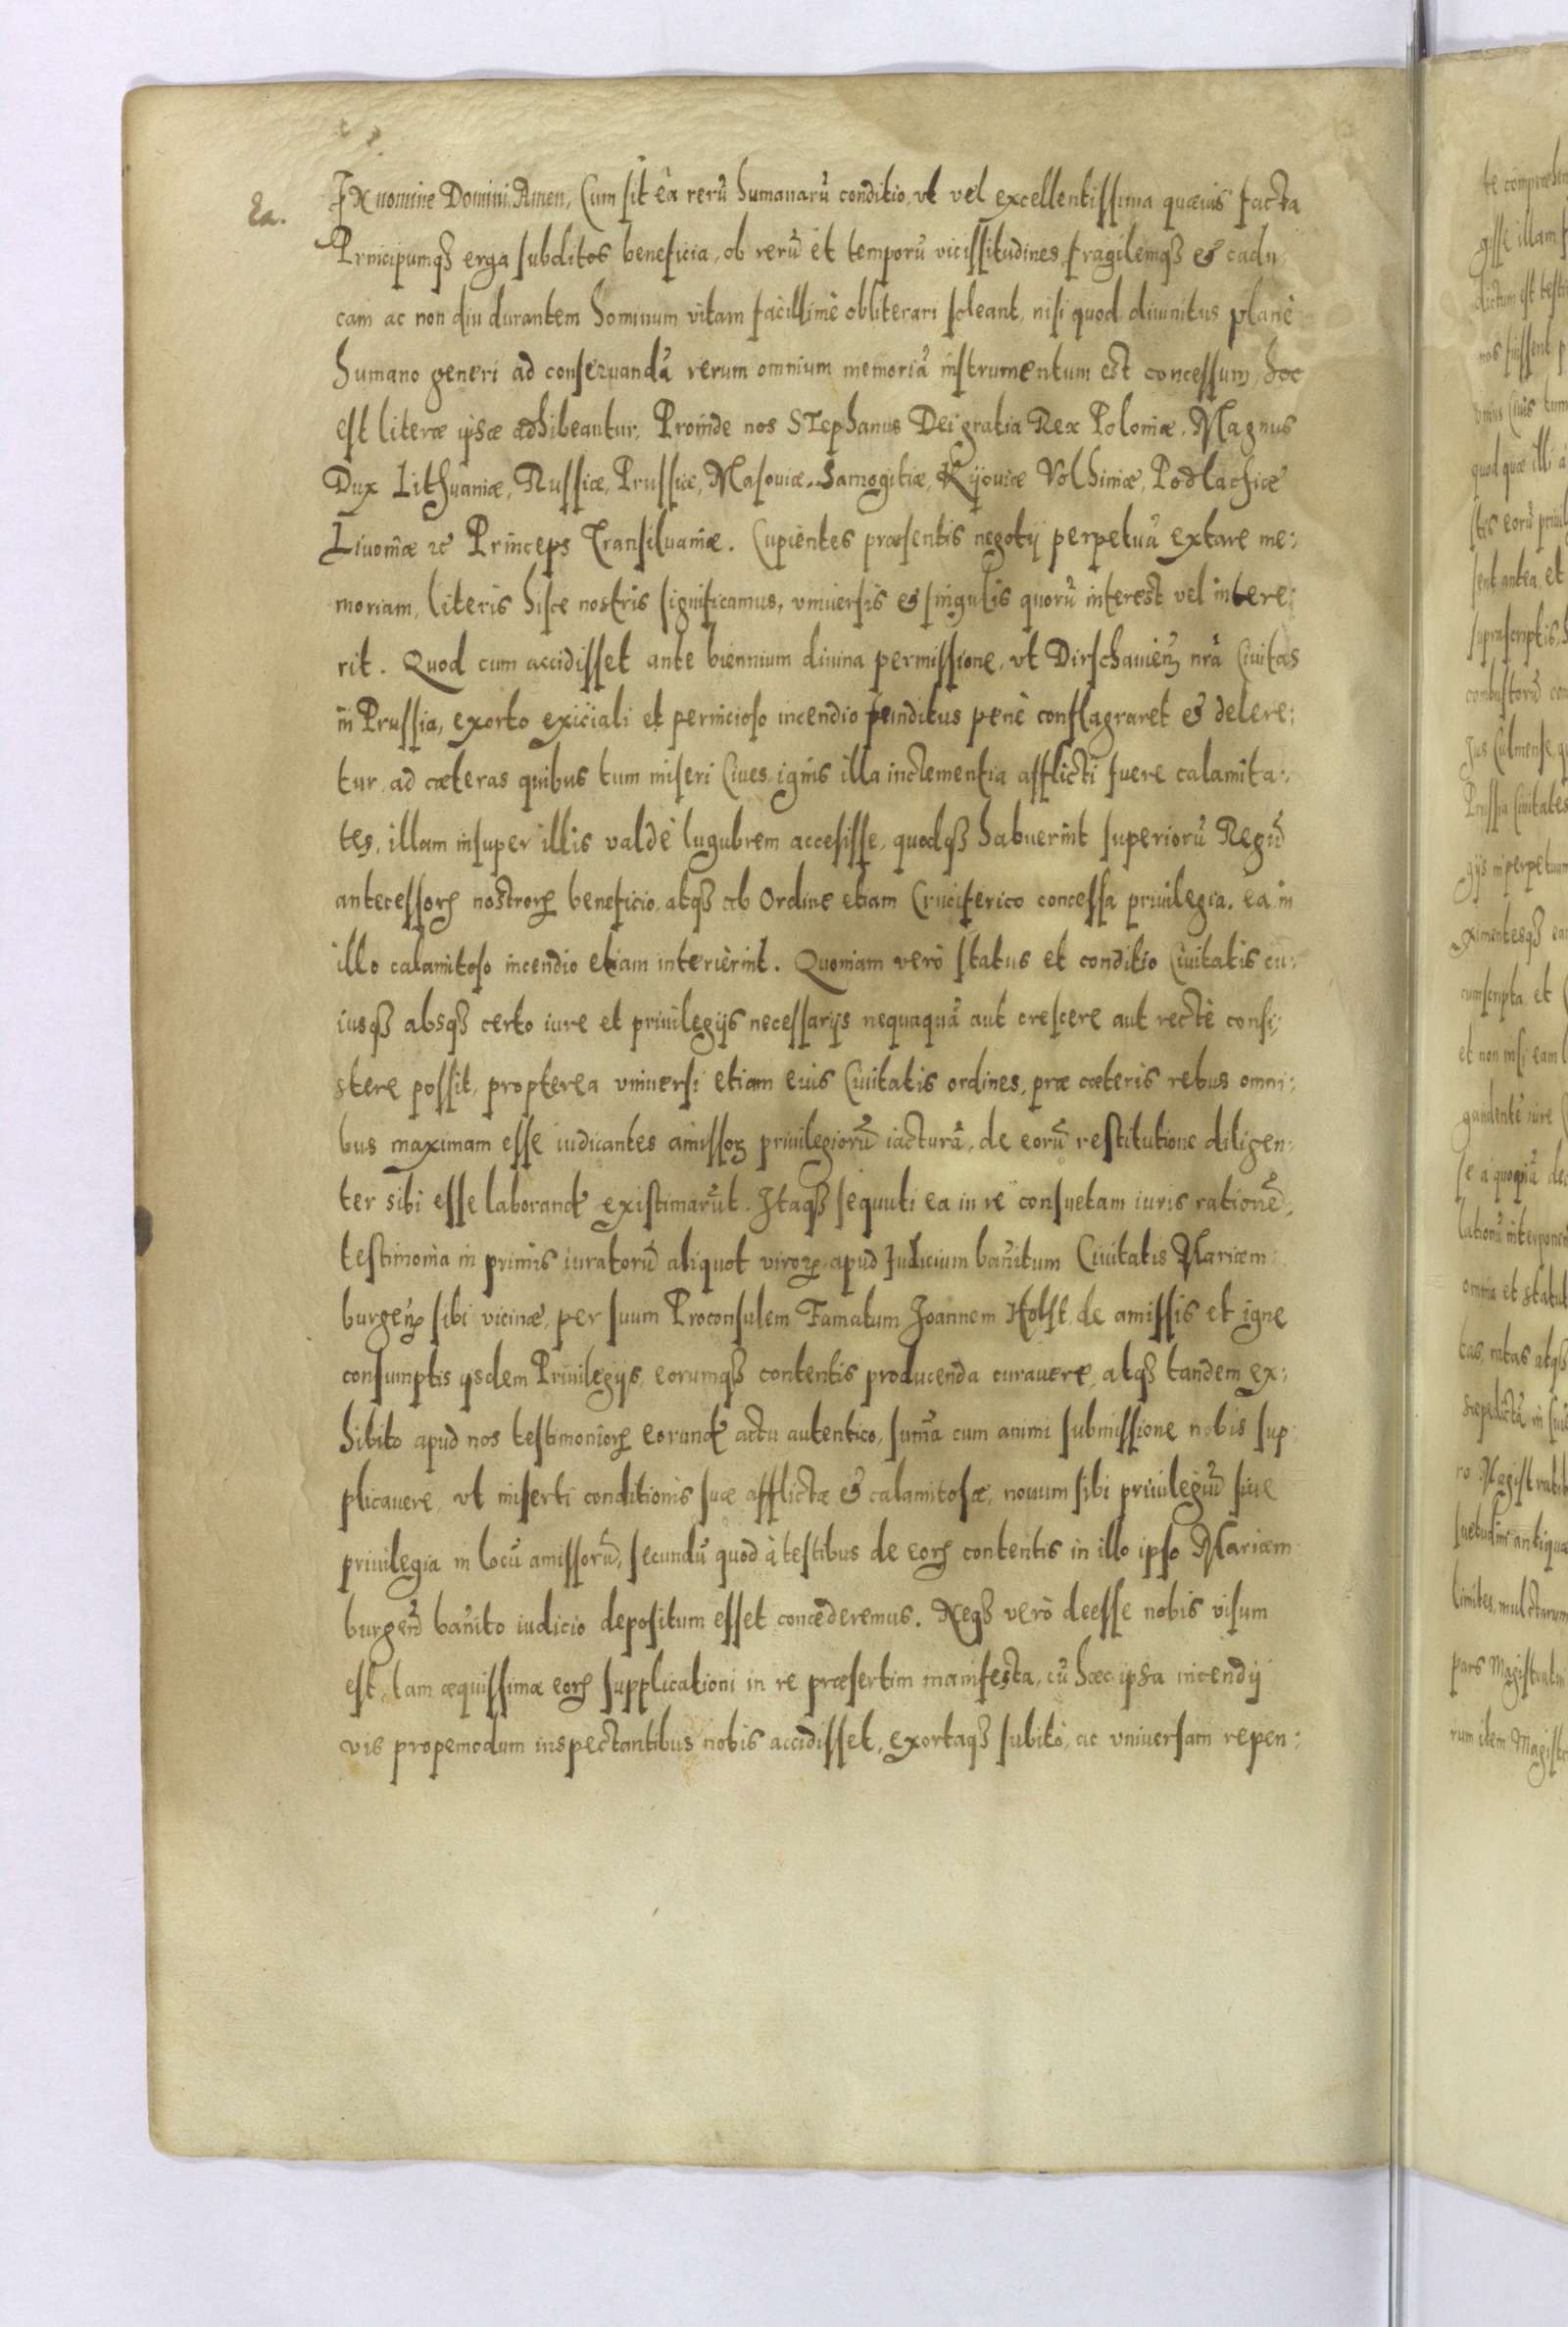 Ea.
IN nomine Domini Amen. Cum sit ea rerũ humanarũ conditio, vt vel excellentissima quæuis facta
Principumqȝ erga subditos beneficia, ob rerũ et temporũ vicissitudines, fragilemqȝ & cadu
cam ac non diu durantem hominum vitam facillimè obliterari soleant, nisi quod diuinitus planè
humano generi ad conseruandã rerum omnium memoriã instrumentum est concessum, hoc
est literæ ipsæ adhibeantur, Proinde nos STephanus Dei gratia Rex Poloniæ, Magnus
Dux Lithuaniæ, Russiæ, Prussiæ, Masouiæ, Samogitiæ, Kijouiæ Volhiniæ, Podlachiæ
Liuoniæ ꝛc Princeps Transiluaniæ. Cupientes præsentis negotij perpetuã extare me:
moriam, literis hisce nostris significamus, vniuersis & singulis quorũ interest vel intere:
rit. Quod cum accidisset ante biennium diuina permissione, vt Dirschauieñ nrã Ciuitas
in Prussia, exorto exiciali et pernicioso incendio funditus penè conflagraret & delere:
tur, ad cæteras quibus tum miseri Ciues ignis illa inclementia afflicti fuere calamita:
tes, illam insuper illis valdè lugubrem accesisse, quodqȝ habuerint superiorũ Regũ
antecessorꝝ nostrorꝝ beneficio, atqȝ ab Ordine etiam Cruciferico concessa priuilegia, ea in
illo calamitoso incendio etiam interièrint. Quoniam verò status et conditio Ciuitatis cu:
iusqȝ absqȝ certo iure et priuilegijs necessarijs nequaquã aut crescere aut rectè consi:
stere possit, propterea vniuersi etiam eius Ciuitatis ordines, præ cæteris rebus omni:
bus maximam esse iudicantes amissoꝝ priuilegiorũ iacturã, de eorũ restitutione diligen:
ter sibi esse laborand' existimarũt. Itaqȝ sequuti ea in re consuetam iuris rationẽ,
testimonia in primis iuratorũ aliquot virorꝝ apud Iudicium bañitum Ciuitatis Mariæm
burgeñ sibi vicinæ, per suum Proconsulem Famatum Joannem Holst, de amissis et igne
consumptis ijsdem Priuilegijs, eorumqȝ contentis producenda curauere, atqȝ tandem ex:
hibito apud nos testimoniorꝝ eorund' actu autentico, sum̃a cum animi submissione nobis sup
plicauere, vt miserti conditionis suæ afflictæ & calamitosæ, nouum sibi priuilegiũ siue
priuilegia in locũ amissorũ, secundũ quod à testibus de eorꝝ contentis in illo ipso Mariæm
burgeñ bañito iudicio depositum esset concederemus. Neqȝ verò deesse nobis visum
est, tam æquissimæ eorꝝ supplicationi in re præsertim manifesta, cũ hæc ipsa incendij
vis propemodum inspectantibus nobis accidisset, exortaqȝ subitò, ac vniuersam repen: